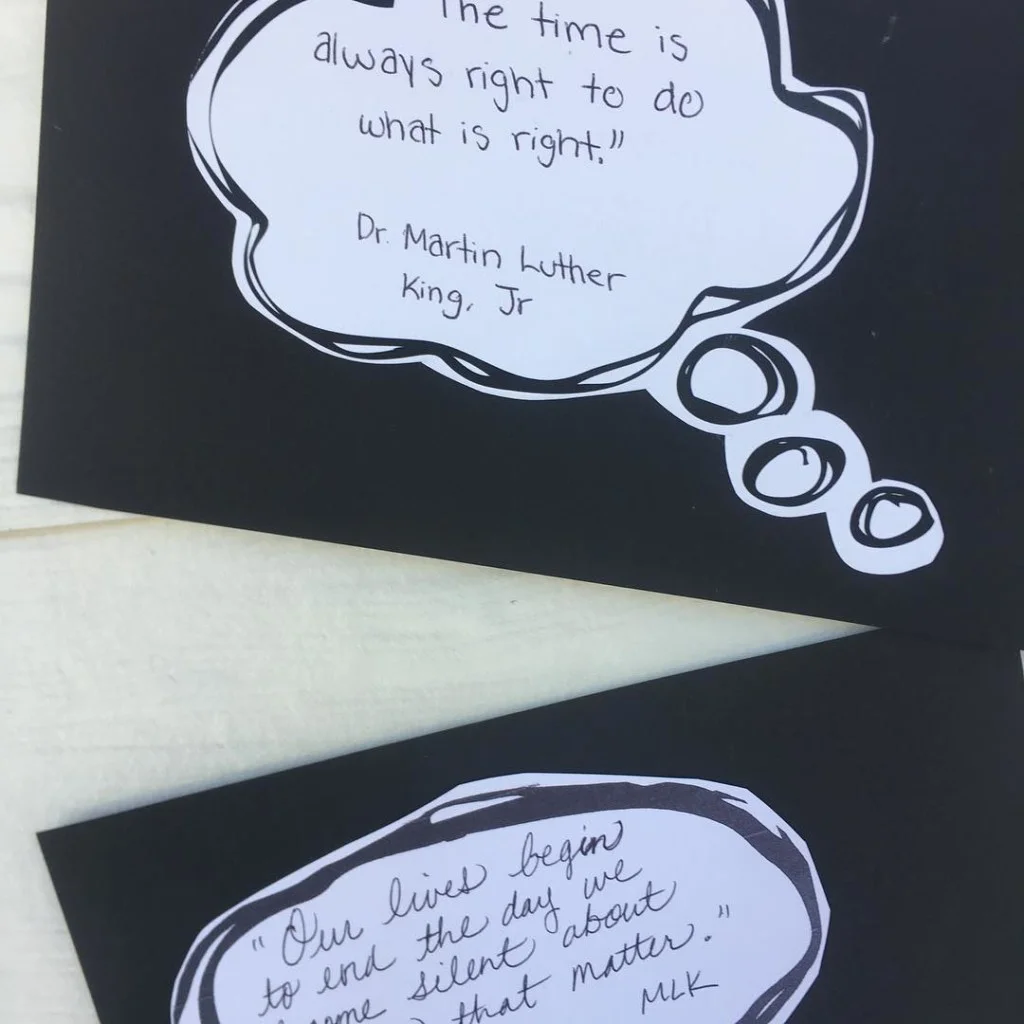 "The time is
always right to do
what is right."
Dr. Martin Luther
King, Jr
"Our lives begin
to end the day we
become silent about
that matter."
MLK